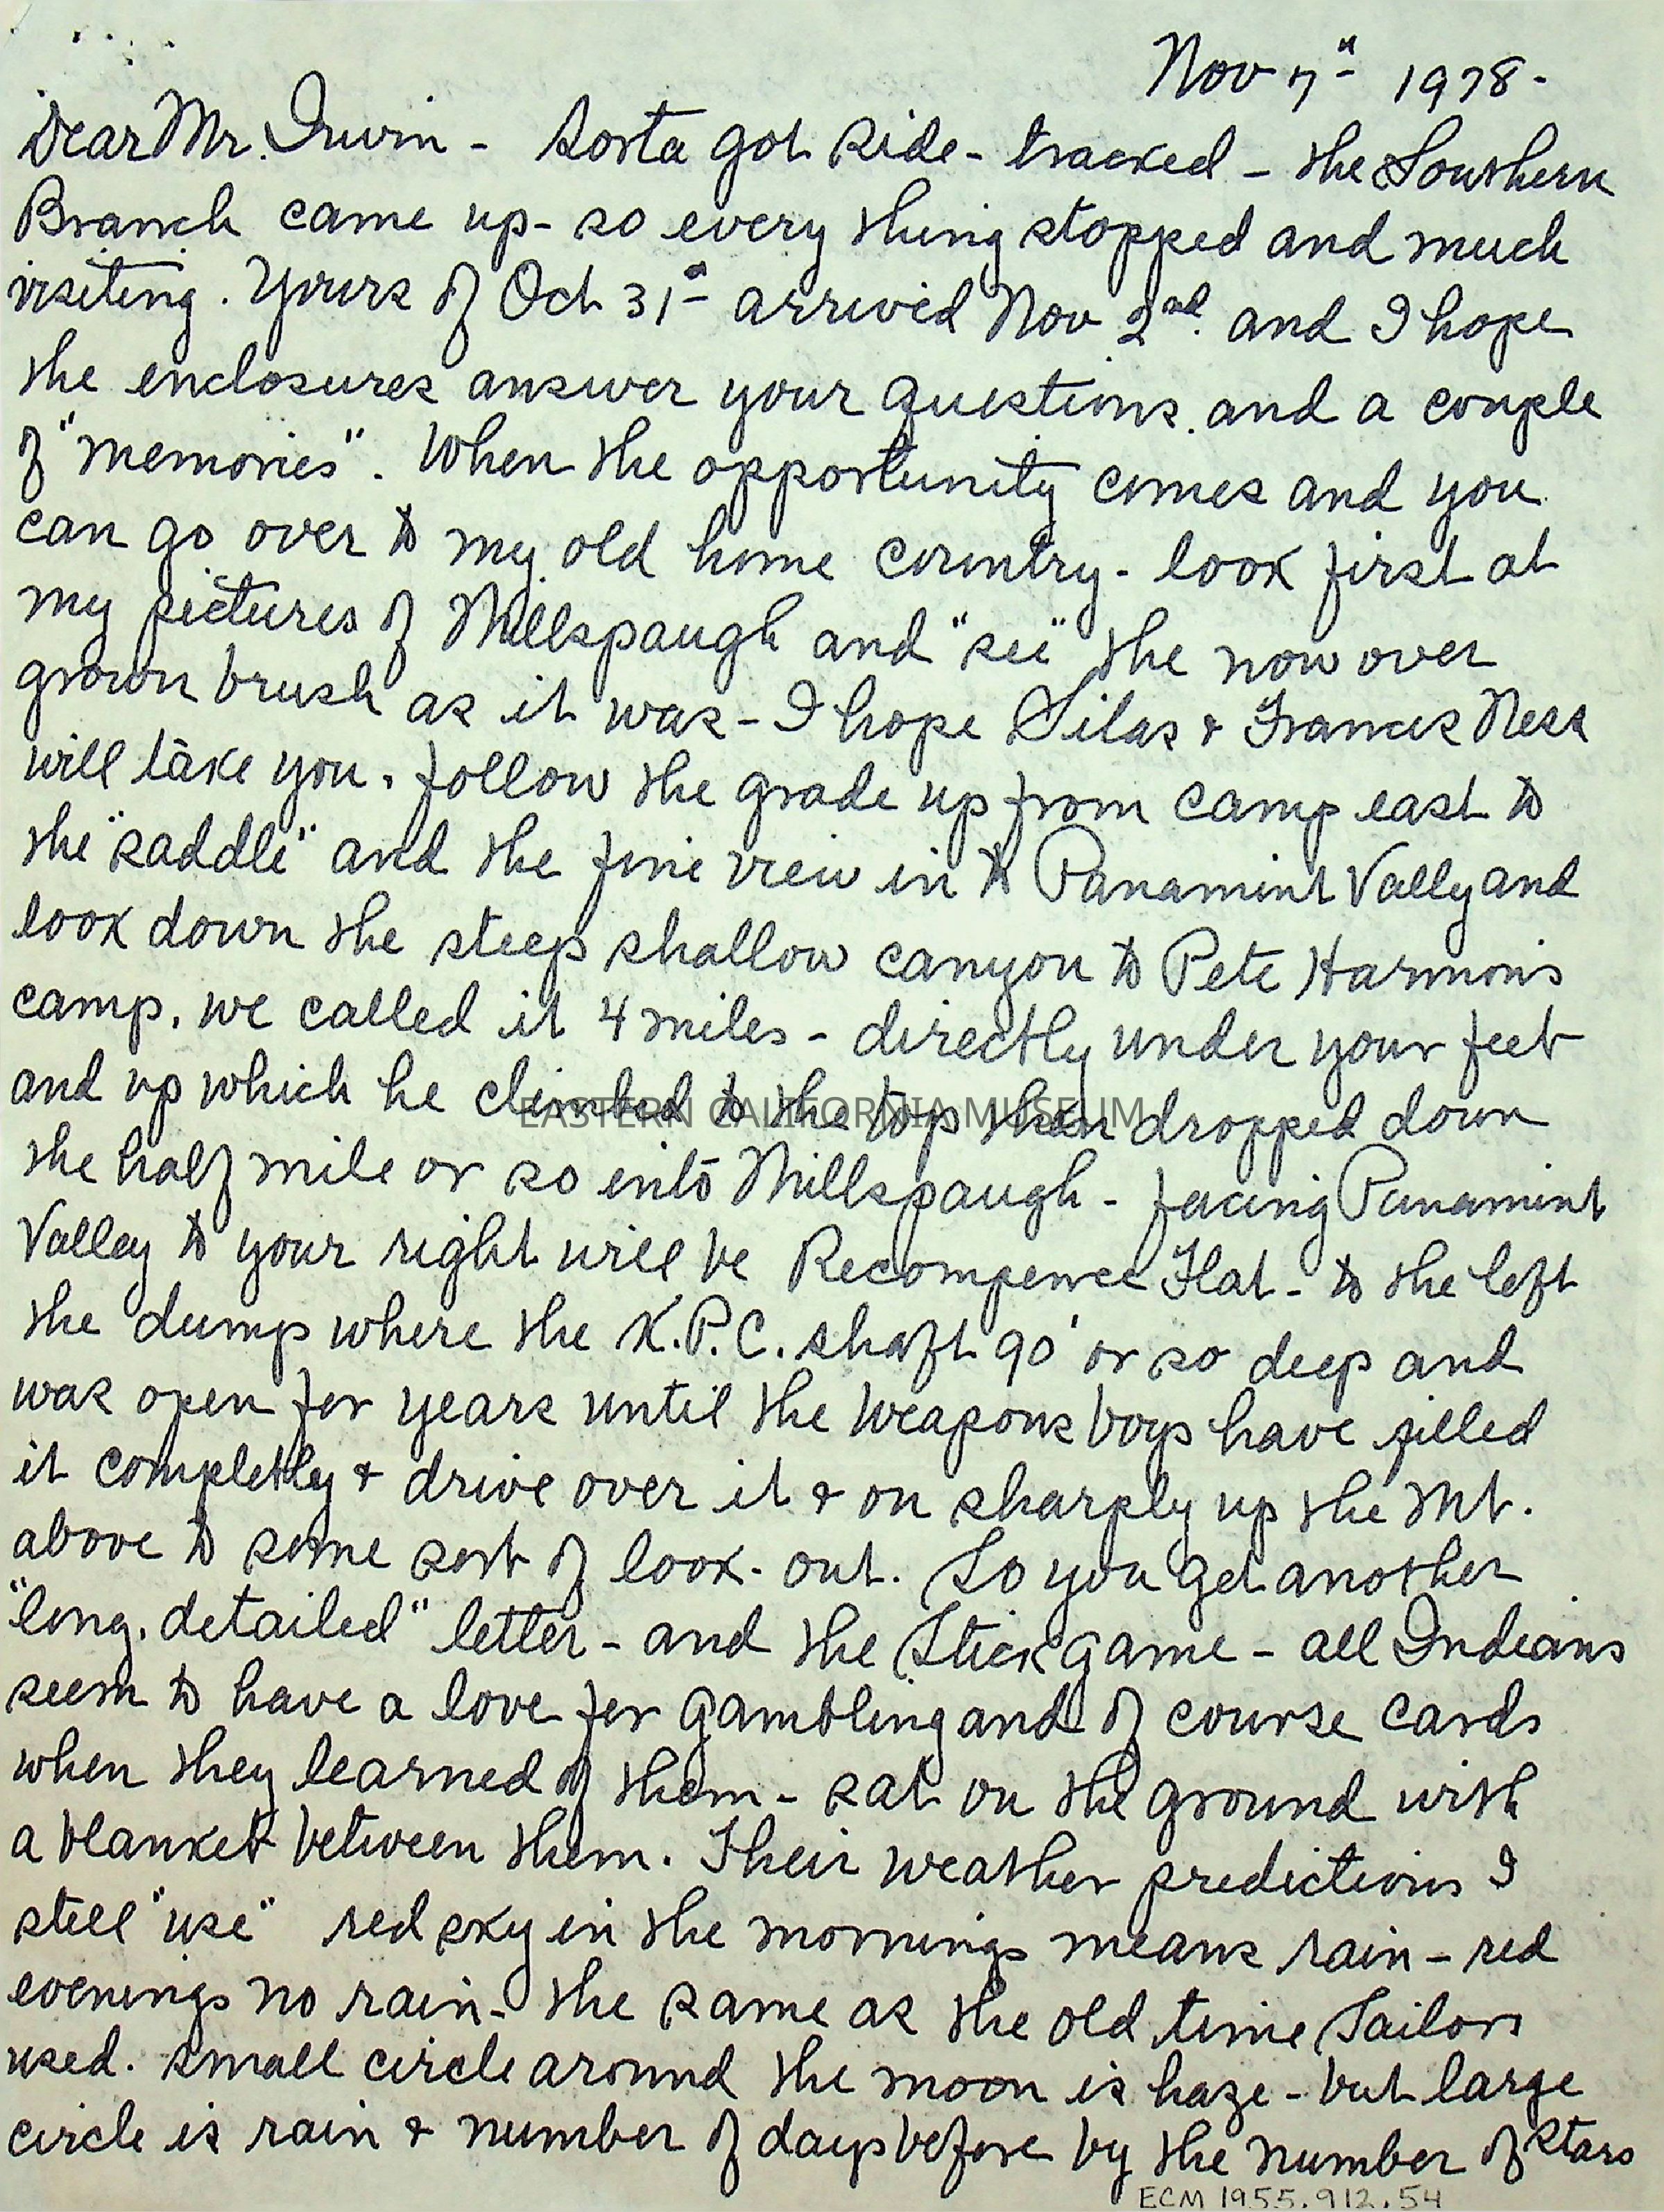 Nov 7th 1978.
Dear Mr. Irwin - Sorta got side-tracked - the Southern
Branch came up - so every thing stopped and much
visiting. Yours of Oct 31st arrived Nov 2nd. and I hope
the enclosures answer your questions. and a couple
of "memories". When the opportunity comes and you
can go over to my old home country - look first at
my pictures of Millspaugh and "see" the now over
grown brush as it was - I hope Silas & Francis Ness
will take you. follow the grade up from camp east to
the "saddle" and the fine view in to Panamint Vally and
look down the steep shallow canyon to Pete Harmon's
camp. we called it 4 miles - directly under your feet
and up which he climbed to the top then dropped down
EASTERN CALIFORNIA MUSEUM
the half mile or so into Millspaugh - facing Panamint
Valley to your right will be Recompence Flat - to the left
the dump where the K.P.C. shaft 90' or so deep and
was open for years until the Weapons boys have filled
it completly & drive over it & on sharply up the Mt.
above to some sort of look-out. So you get another
"long, detailed" letter - and the Stick game - all Indians
seem to have a love for gambling and of course cards
when they learned of them - sat on the ground with
a blanket between them. Their weather predictions I
still "use" red sky in the mornings means rain - red
evenings no rain - the same as the old time Sailors
used. small circle around the moon is haze - but large
circle is rain & number of days before by the number of stars
ECM 1955.912.54